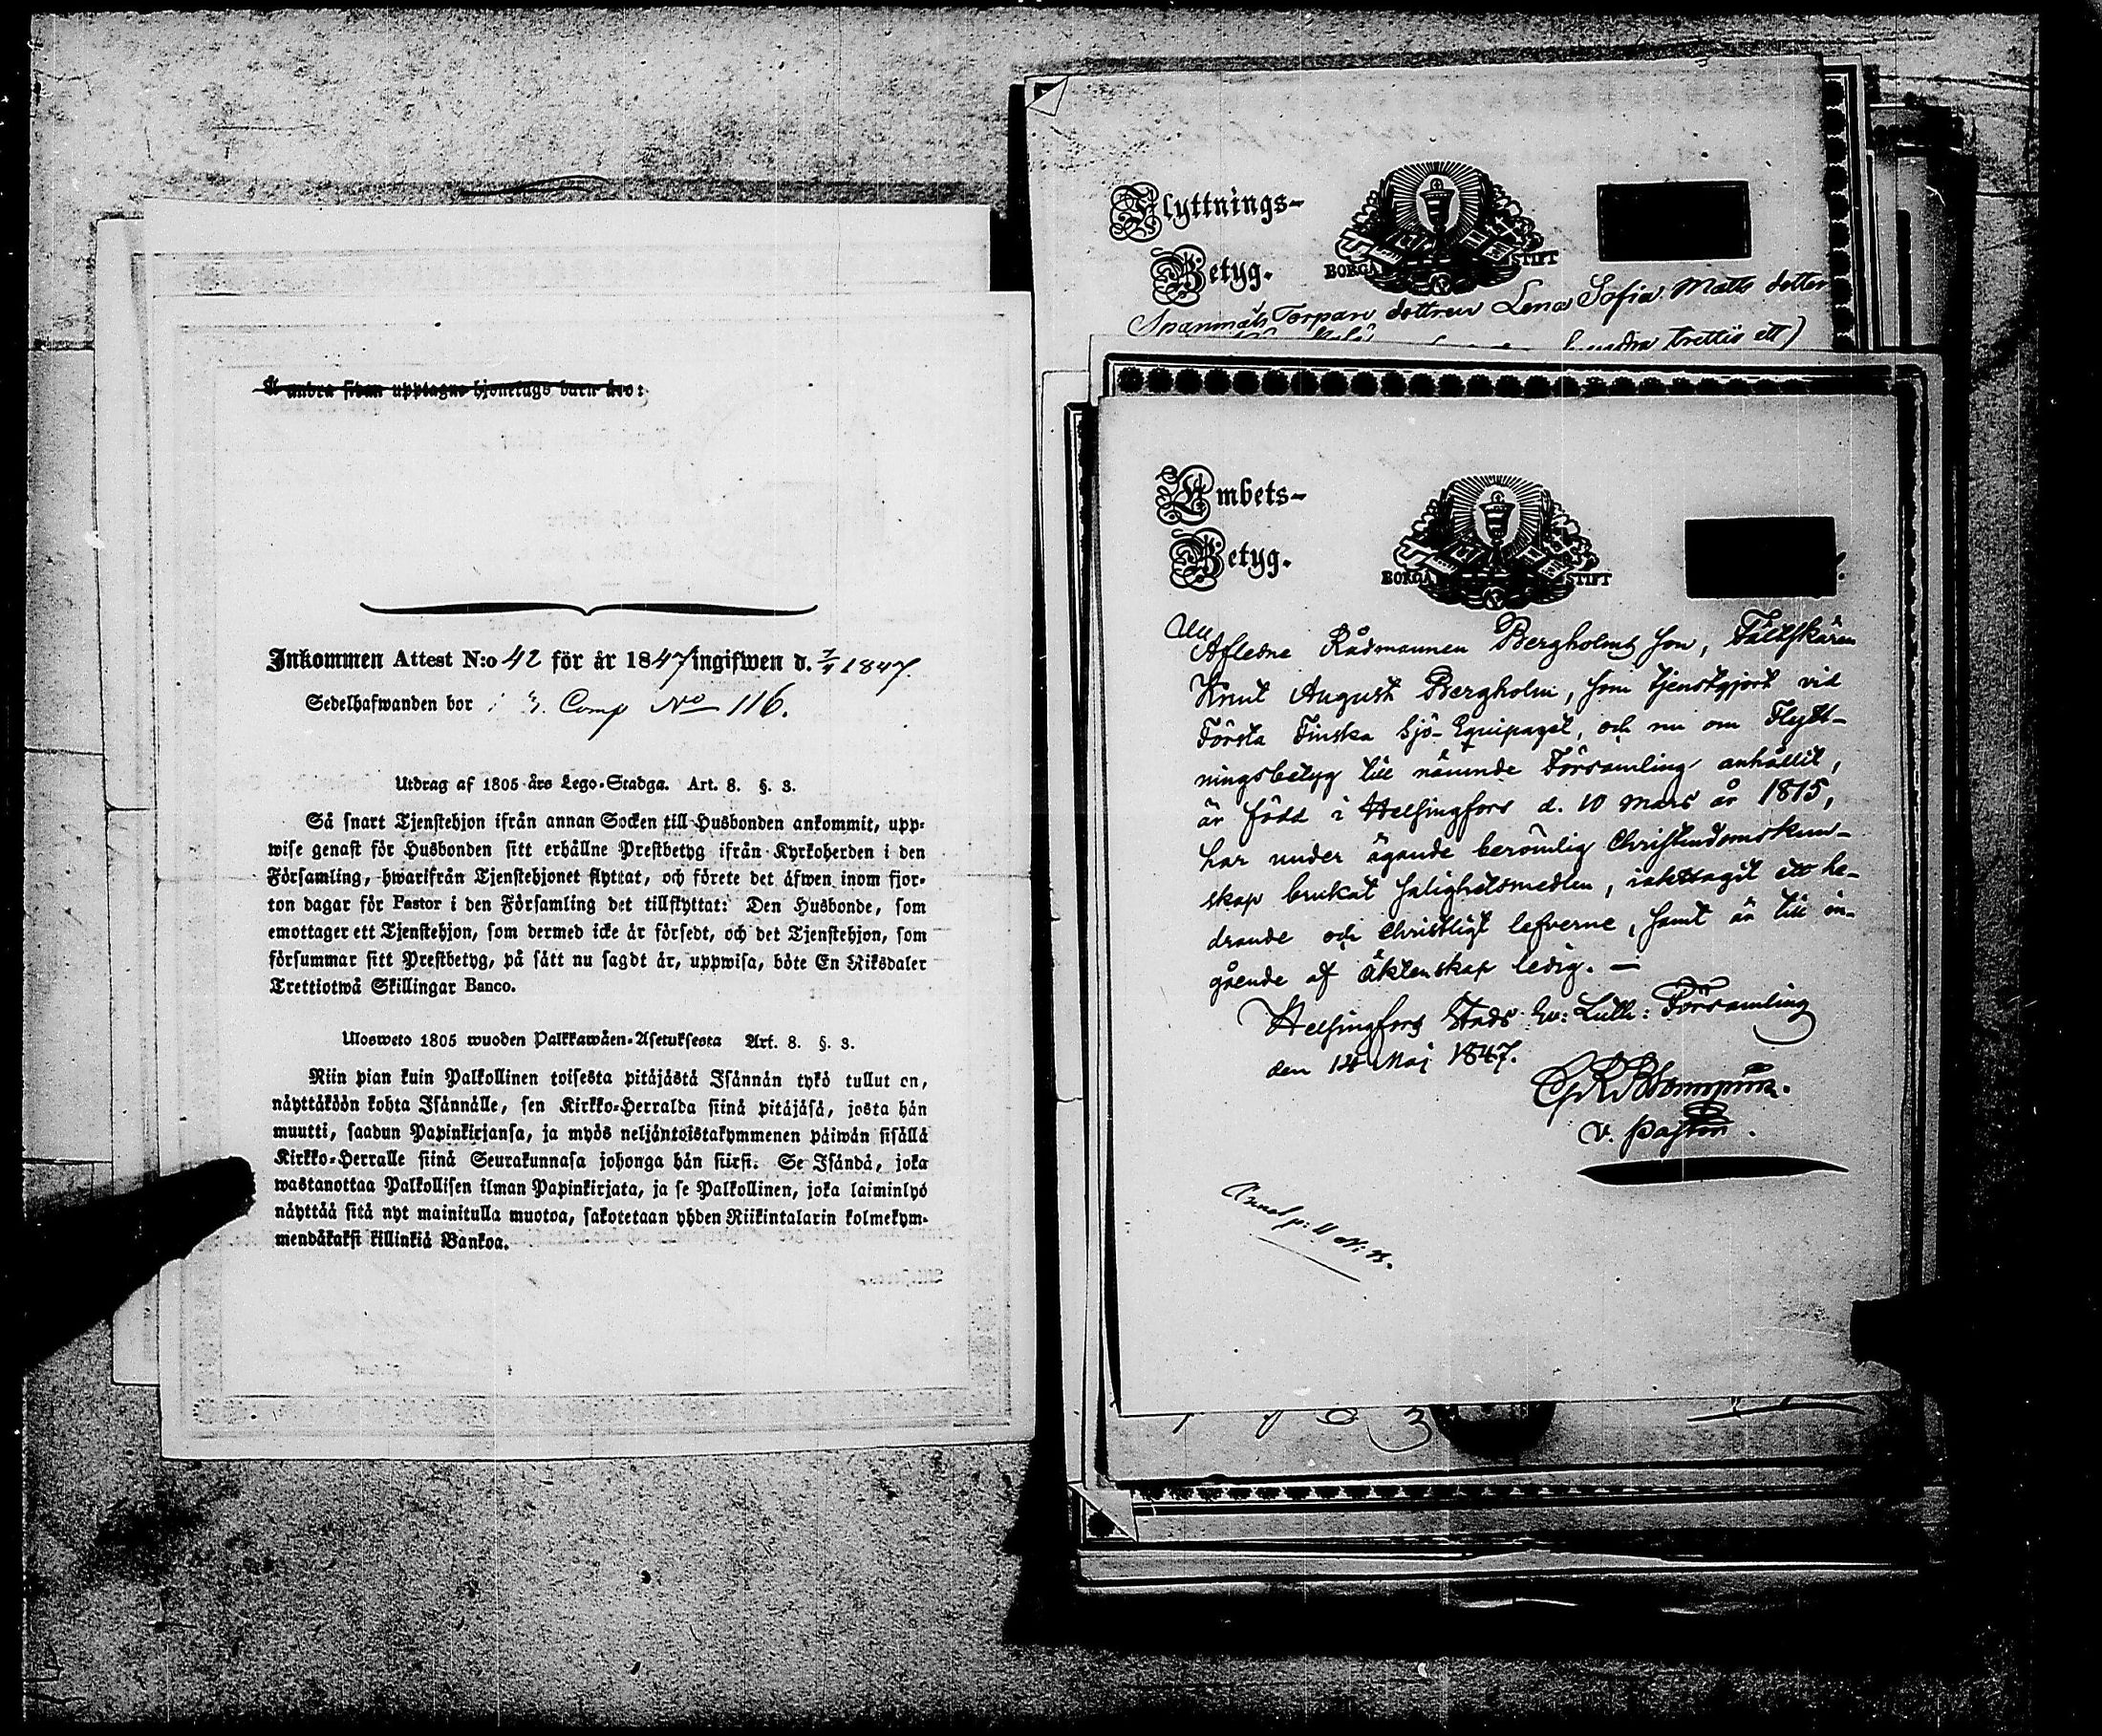 Å andra sidan upptagne hjonelags barn äro:
Inkommen Attest N:o 42 för år 1847 ingifwen d. 1847.
Sedelhafwanden bor i Comp No 116.
Utdrag af 1805 års Lego-Stadga. Art. 8. §. 3.
Så snart Tjenstehjon ifrån annan Socken till Husbonden ankommit, upp-
wise genast för Husbonden sitt erhållne Prestbetyg ifrån Kyrkoherden i den
Församling, hwarifrån Tjenstehjonet flyttat, och förete det äfwen inom fjor-
ton dagar för Pastor i den Församling det tillflyttat: Den Husbonde, som
emottager ett Tjenstehjon, som dermed icke är försedt, och det Tjenstehjon, som
försummar sitt Prestbetyg, på sätt nu sagdt är, uppwisa, böte En Riksdaler
Trettiotwå Skillingar Banco.
Ulosweto 1805 wuoden Palkkawäen-Asetuksesta Art. 8. §. 3.
Niin pian kuin Palkollinen toisesta pitäjästä Isännän tykö tullut on,
näyttäköön kohta Isännälle, sen Kirkko-Herralda siinä pitäjäsä, josta hän
muutti, saadun Papinkirjansa, ja myös neljäntoistakymmenen päiwän sisällä
Kirkko-Herralle siinä Seurakunnasa johonga hän siirsi. Se Isändä, joka
wastanottaa Palkollisen ilman Papinkirjata, ja se Palkollinen, joka laiminlyö
näyttää sitä nyt mainitulla muotoa, sakotetaan yhden Riikintalarin kolmekym-
mendäkaksi killinkiä Bankoa.
Flyttnings-
Betyg.
BORGÅ STIFT
Torpare dottren Lena Sofia Matts dotter
trettio ett)
Embets-
Betyg.
BORGÅ STIFT
Aflidne Rådmannen Bergholms son, Fältskären
Knut August Bergholm, som tjenstgjort vid
Första Finska Sjö-Equipaget, och nu om Flytt-
ningsbetyg till nämnde Församling anhållit,
är född i Helsingfors d. 10 Mars år 1815,
har under ägande berömlig Christendomskun-
skap brukat salighetsmedlen, iakttagit ett he-
drande och Christligt lefverne, samt är till in-
gående af äktenskap ledig. —
Helsingfors Stads Ev: Luth: Församling
den 14 Maj 1847.
v. Pastor.